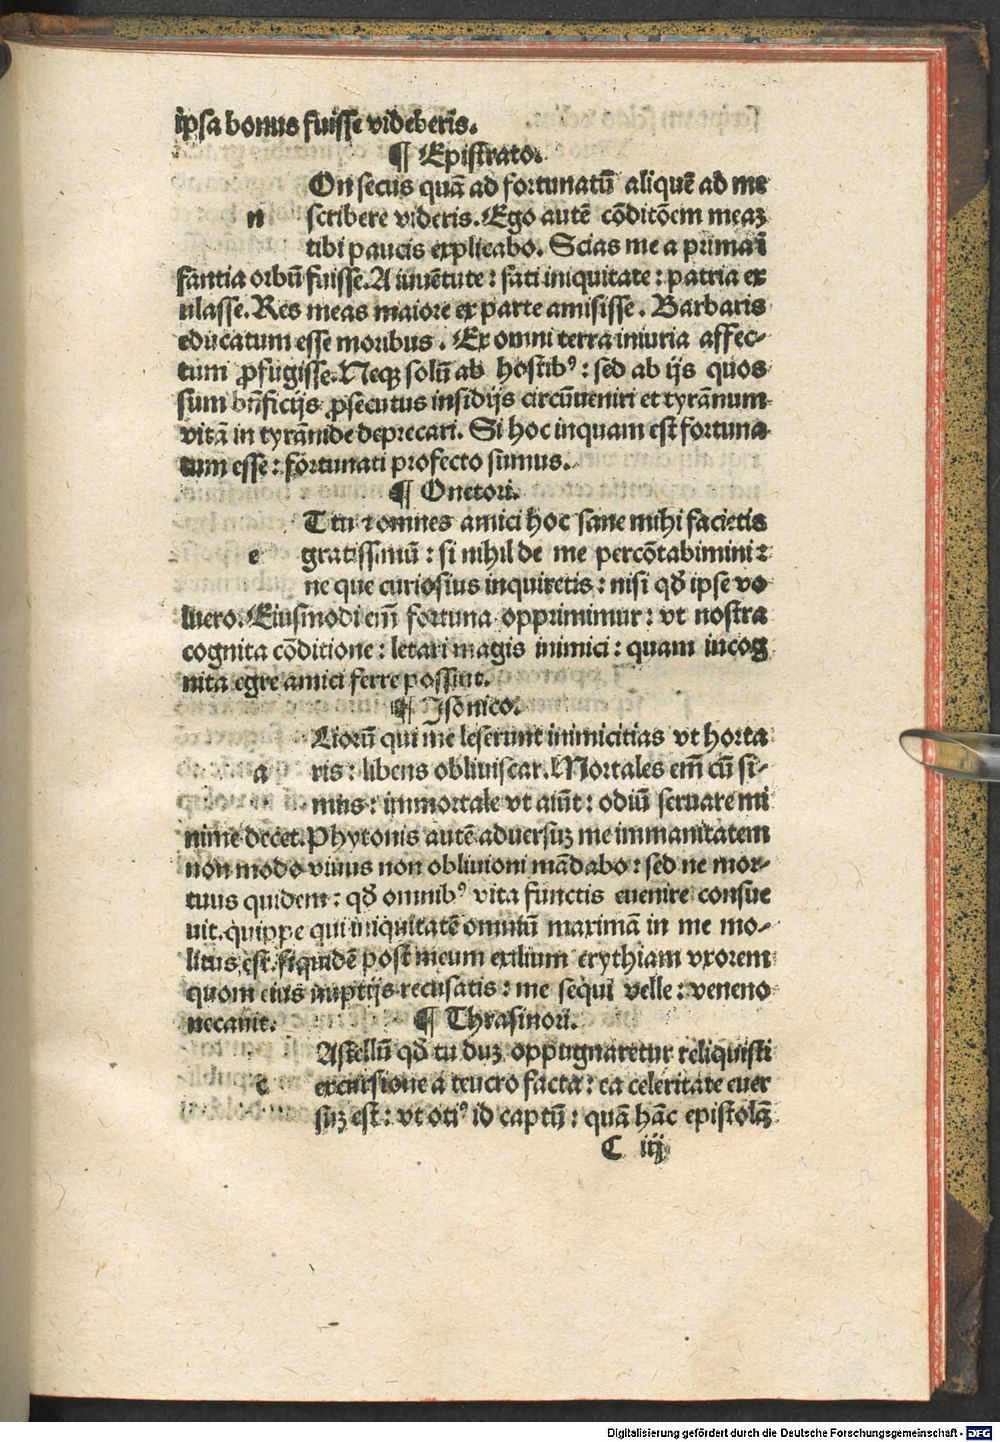 ipsa bonus fuisse videberis.
¶ Epistrato.
On secus quā ad fortunatū aliquē ad me
n scribere videris. Ego autē cōditōem meaꝫ
tibi paucis explicabo. Scias me a prima ī
fantia orbū fuisse. A iuuētute: fati iniquitate: patria ex
ulasse. Res meas maiore ex parte amisisse. Barbaris
educatum esse moribus. Ex omni terra iniuria affec-
tum ꝓfugisse. Neqꝫ solū ab hostibꝰ: sed ab ijs quos
sum bn̄ficijs ꝓsecutus insidijs circūueniri et tyrānum
vitā in tyrānide deprecari. Si hoc inquam est fortuna
tum esse: fortunati profecto sumus.
¶ Onetori.
T tu ⁊ omnes amici hoc sane mihi facietis
e gratissimū: si nihil de me percōtabimini ⁊
ne que curiosius inquiretis: nisi qđ ipse vo
luero. Eiusmodi em̄ fortuna opprimimur: vt nostra
cognita cōditione: letari magis inimici: quam incog
nita egre amici ferre possint.
¶ Isonico.
Liorū qui me leserunt inimicitias vt horta
a ris: libens obliuiscar. Mortales em̄ cū si-
mus: immortale vt aiūt: odiū seruare mi
nime decet. Phytonis autē aduersuꝫ me immanitatem
non modo viuus non obliuioni mādabo: sed ne mor-
tuus quidem: qđ omnibꝰ vita functis euenire consue
uit. quippe qui iniquitatē omniū maximā in me mo-
litus est. siquidē post meum exilium erythiam vxorem
quom eius nuptijs recusatis: me sequi velle: veneno
necauit. ¶ Thrasinori.
Astellū qđ tu duꝫ oppugnaretur reliquisti
c excursione a teucro facta: ea celeritate euer
suꝫ est: vt otiꝰ id captū: quā hāc epistolā
C iij
Digitalisierung gefördert durch die Deutsche Forschungsgemeinschaft - DFG